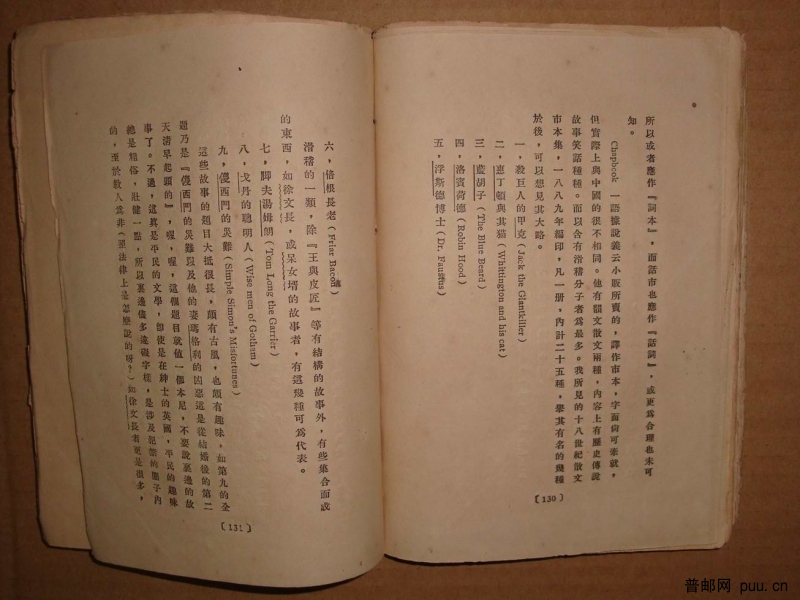 所以或者應作『詞本』，而話市也應作『話詞』，或更爲合理也未可
知。
Chapbook 一語據說義云小販所賣的，譯作市本，字面尙可牽就，
但實際上與中國的很不相同。他有韻文散文兩種，內容上有歷史傳說
故事笑話種種，而以含有滑稽分子者爲最多。我所見的十八世紀散文
市本集，一八八九年編印，凡一册，內計二十五種，舉其有名的幾種
於後，可以想見其大略。
一，殺巨人的甲克(Jack the Giantkiller)
二，惠丁頓與其猫(Whittington and his cat)
三，藍胡子(The Blue Beard)
四，洛賓荷德(Robin Hood)
五，浮斯德博士(Dr. Faustus)
〔130〕
六，倍根長老(Friar Bacon)
滑稽的一類，除『王與皮匠』等有結構的故事外，有些集合而成
的東西，如徐文長，或呆女壻的故事者，有這幾種可爲代表。
七，脚夫湯姆朗(Tom Long the Carrier)
八，戈丹的聰明人(Wise men of Gotham)
九，傻西門的災難(Simple Simon's Misfortunes)
這些故事的題目大抵很長，頗有古風，也頗有趣味，如第九的全
題乃是『傻西門的災難以及他的妻瑪格利的凶惡這是從結婚後的第二
天淸早起頭的』，喔，喔，這個題目就值一個本尼，不要說裏邊的故
事了。不過，這眞是平民的文學，卽使是在紳士的英國，平民的趣味
總是粗俗，壯健一點，所以裏邊儘多違礙字樣，是涉及犯禁的圈子內
的，至於敎人爲非(照法律上是怎麽說的呀？)如徐文長者更是很多，
〔131〕
普邮网 puu.cn